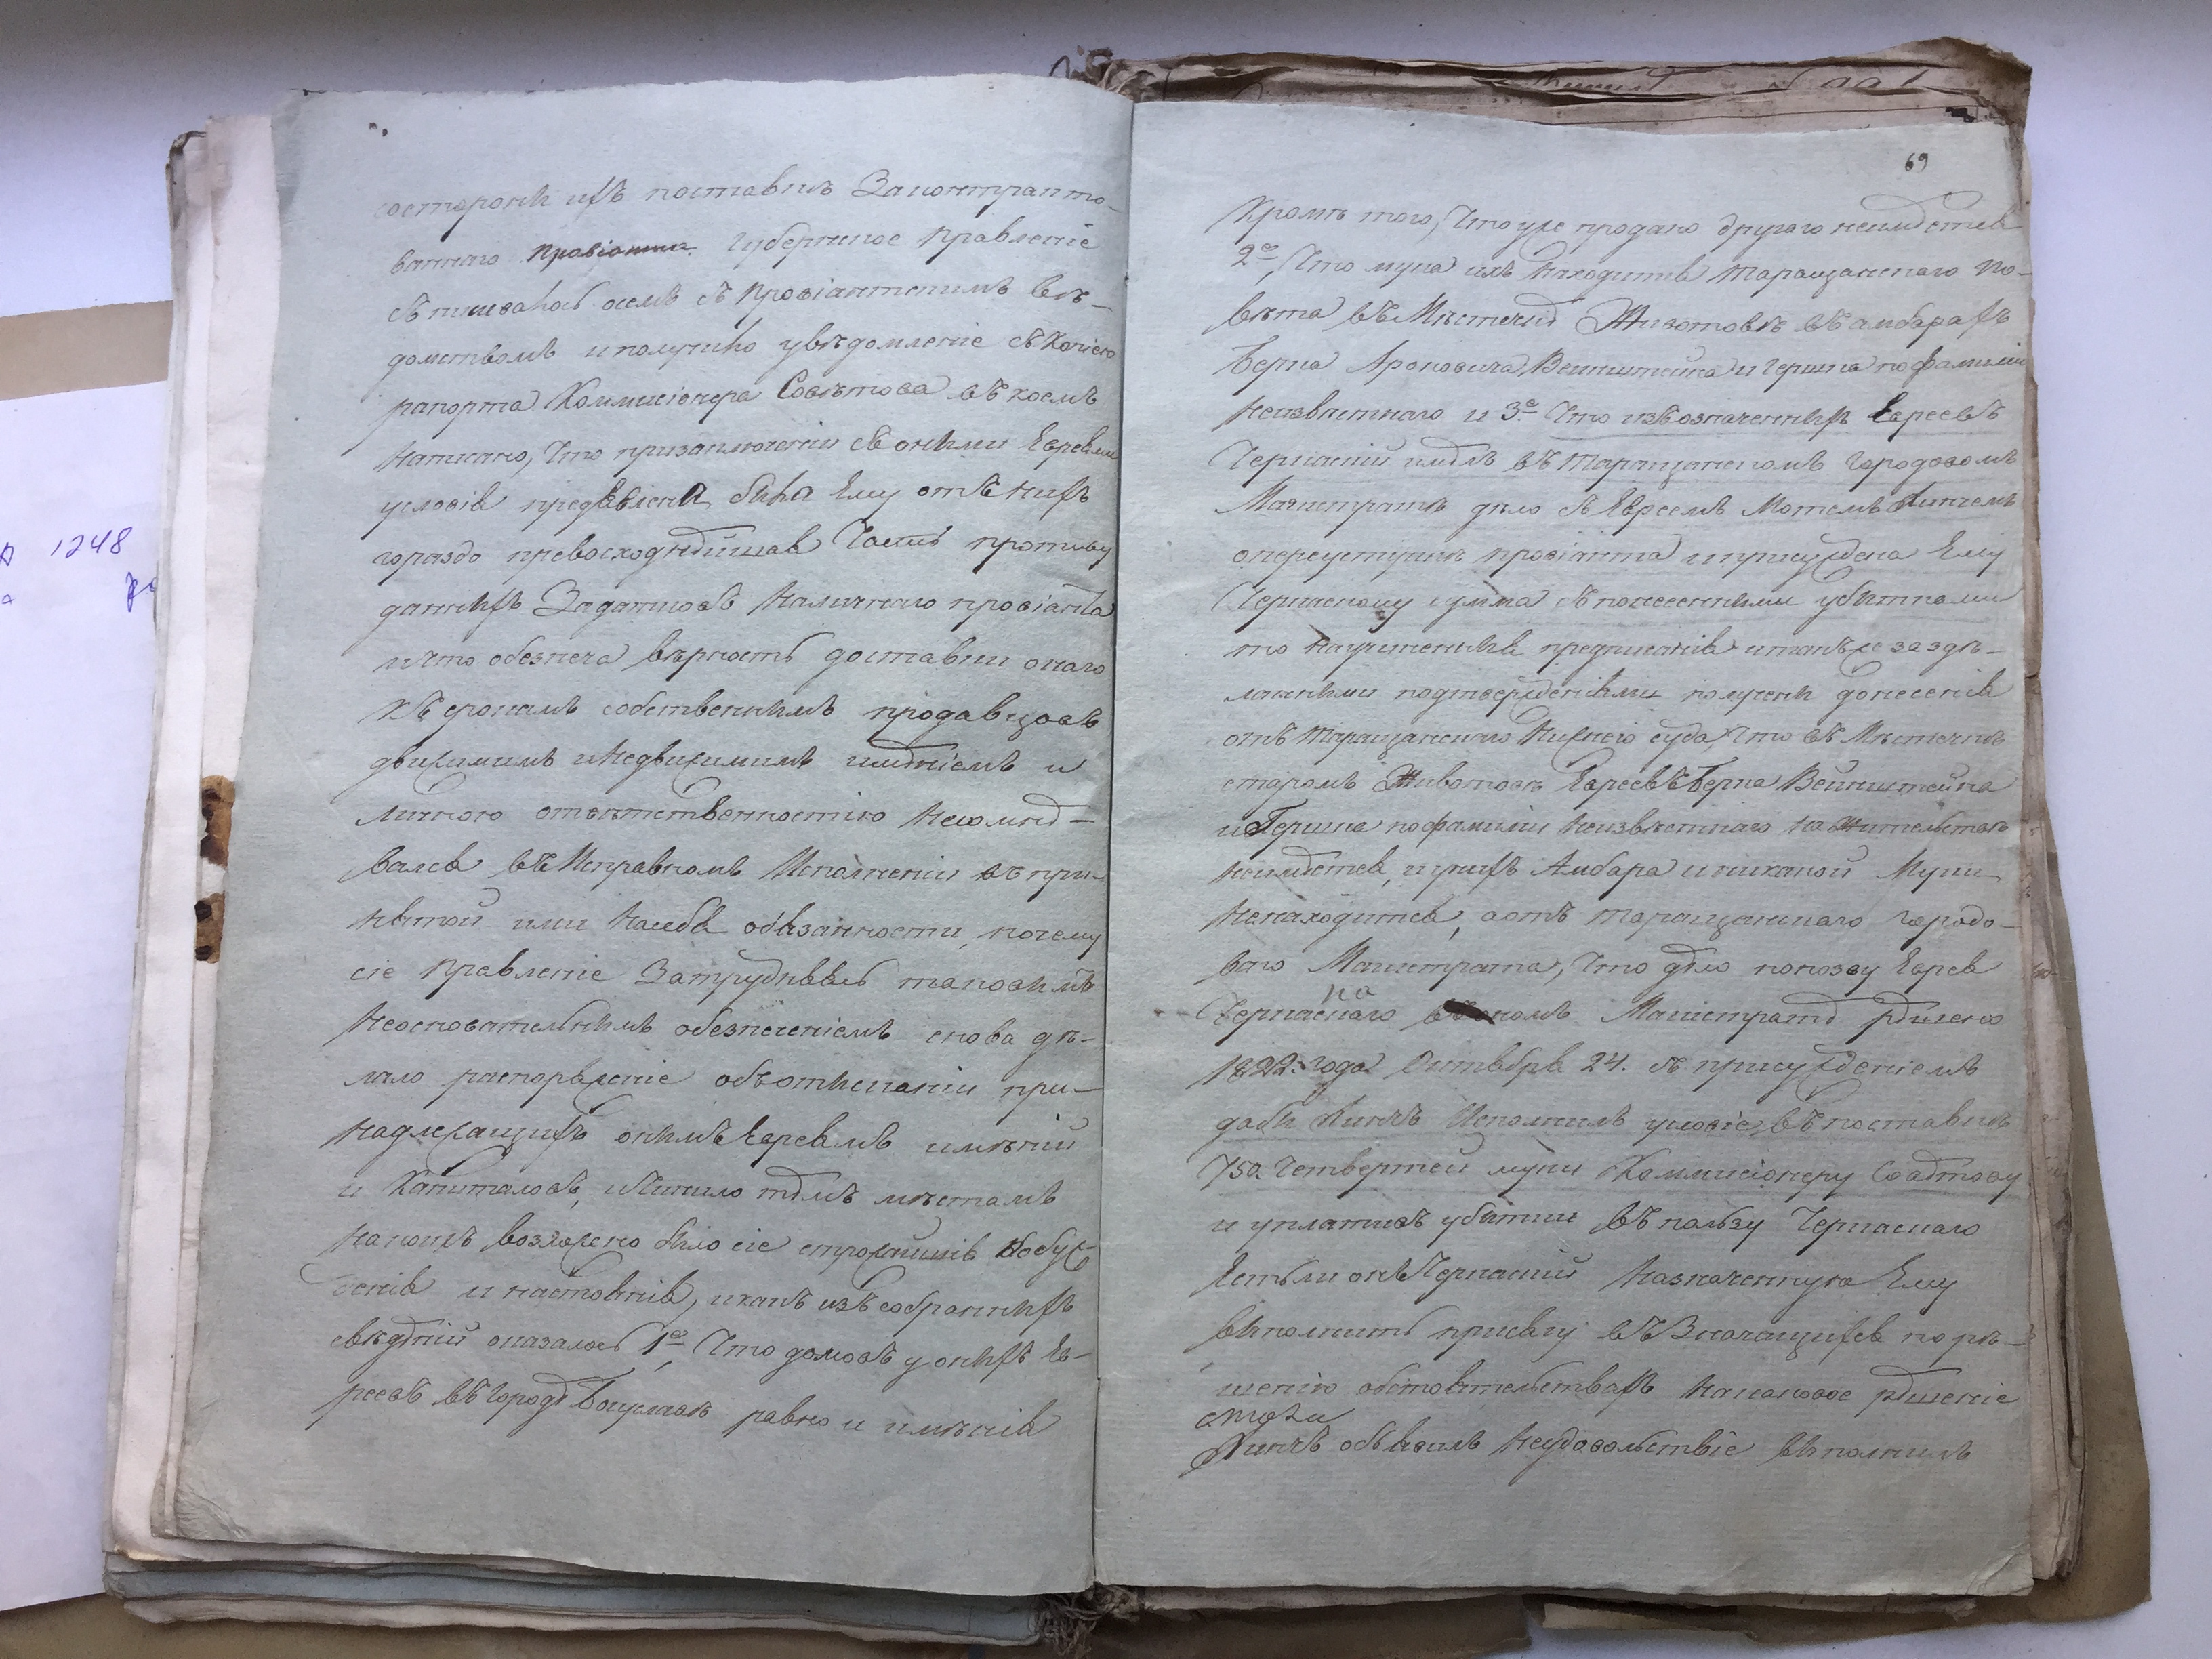 состороны ихъ поставить Законтракто-
ваннаго провіанта. Губернское Правленіе
съписывалось осемъ съ Провіантскимъ вѣ-
домствомъ иполучило увѣдомленіе съ Копіею
рапорта Коммисіонера Совѣтова въ коемъ
написано, Что призаключеніи съ оными Евреями
условія предъявлена была Ему отъ нихъ
гораздо превосходнѣйшая Часть противу
данныхъ Задатковъ наличнаго провіанта
ичто обезпеча вѣрность доставки онаго
къ срокамъ собственнымъ продавцовъ
движимымъ инедвижимымъ имѣніемъ и
личною отвѣтственностію несомнѣ-
вался въ Исправномъ Исполненіи въ при-
нятой ими насебя обязанности, почему
сіе Правленіе Затрудняясь таковымъ
неосновательнымъ обезпеченіемъ снова дѣ-
лало распоряженіе объ отысканіи при-
надлежащихъ онымъ Евреямъ имѣній
и Капиталовъ, ичинило тѣмъ мѣстамъ
накоихъ возложено было сіе строжайшія побуж-
денія и настоянія, икакъ изъ собранныхъ
свѣдѣній оказалось 1е, Что домовъ у оныхъ Ев-
реевъ въ городѣ Богуславѣ равно и имѣнія
69
Кромѣ того, Что уже продано другаго неимѣется
2е, Что мука ихъ находится Таращанскаго По-
вѣта въ Мѣстечкѣ Животовкѣ въ амбарахъ
Берка Ароновича Вейнштейна и Гершка по фамиліи
неизвѣстнаго и 3е. Что изъ означенныхъ Евреевъ
Черкаскій имѣлъ въ Таращанскомъ Городовомъ
Магистратѣ дѣло съ Евреемъ Мотемъ
опереуступкѣ провіанта и присуждена Ему
Черкаскому сумма съ понесенными убытками
то научиненныя предписанія итакъже за здѣ-
ланными подтвержденіями получены донесенія
отъ Таращанскаго Нижняго суда, Что въ Мѣстечкѣ
старомъ Животовѣ Евреевъ Берка Вейнштейна
и Гершка по фамиліи Неизвѣстнаго на жительствѣ
неимѣется, и у нихъ Амбара и никакой Муки
ненаходится, а отъ Таращанскаго Городо-
ваго Магистрата, Что дѣло попозву Еврея
на
Черкаскаго ономъ Магистратѣ рѣшено
1822. года Октября 24. съ присужденіемъ
дабы Исполнилъ условіе въ поставкѣ
750. Четвертей муки Коммисіонеру Совѣтову
и уплатилъ убытки въ пользу Черкаскаго
Естьли онъ Черкаскій назначенную Ему
выполнитъ присягу въ Значащихся по рѣ-
шенію обстоятельствахъ накаковое рѣшеніе
объявилъ неудовольствіе выполнилъ